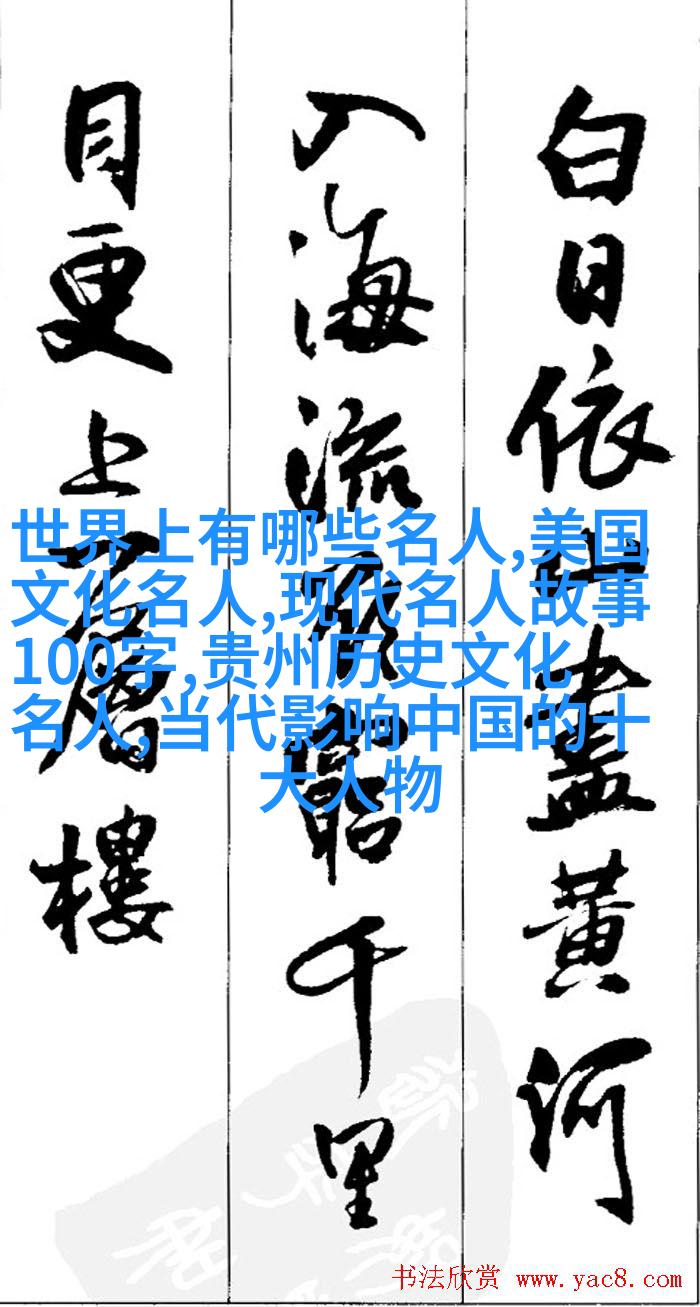 白日依山盡黄河
入海流欲窮千里
目更上一層樓
世界上有哪些名人,美国
文化名人,现代名人故事
100字,贵州历史文化
名人,当代影响中国的十
大人物
书法欣赏 www.yac8.com